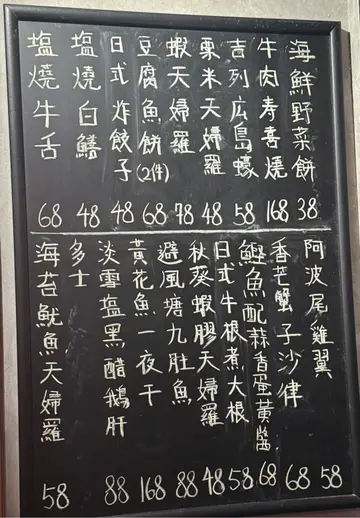 海鮮野菜餅 38
牛肉寿喜燒 168
吉列広島蠔 58
粟米天婦羅 48
蝦天婦羅 78
豆腐魚餅(2件) 68
日式炸餃子 48
塩燒白鱔 48
塩燒牛舌 68
阿波尾雞翼 58
香芒蟹子沙律 68
鰹魚配蒜香蛋黃醬 68
日式牛根煮大根 58
秋葵蝦膠天婦羅 48
避風塘九肚魚 88
黃花魚一夜干 168
淡雪塩黑醋鵝肝
多士 88
海苔魷魚天婦羅 58